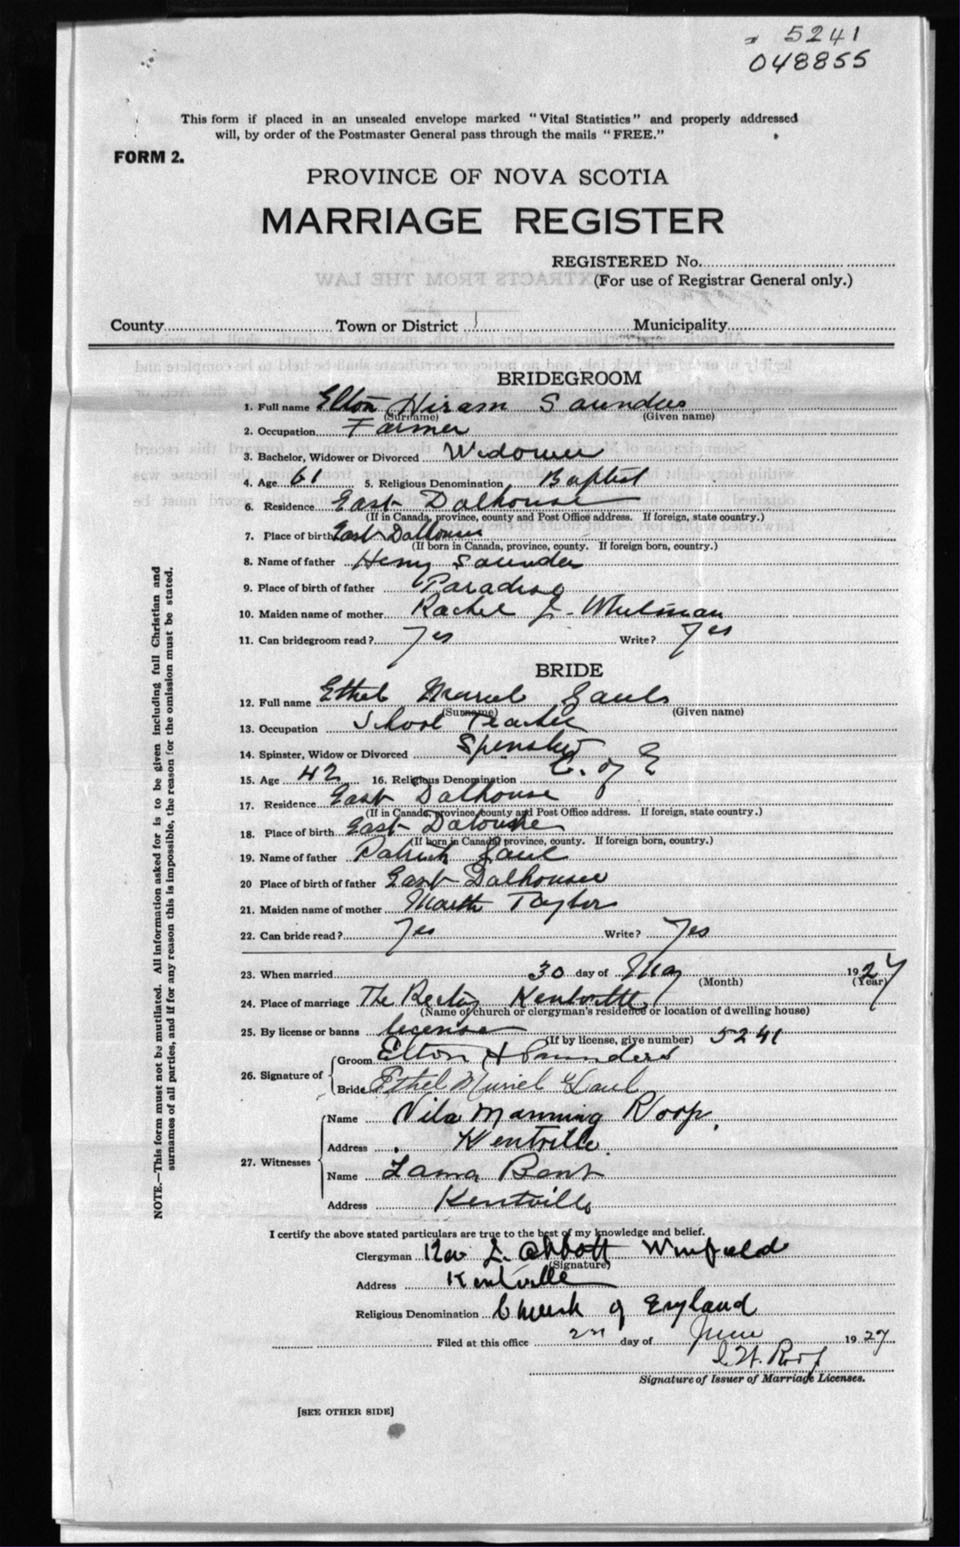 5241
048855
This form if placed in an unsealed envelope marked "Vital Statistics" and properly addressed
will, by order of the Postmaster General pass through the mails "FREE."
FORM 2.
PROVINCE OF NOVA SCOTIA
MARRIAGE REGISTER
REGISTERED No.
(For use of Registrar General only.)
EXTRACTS FROM THE LAW
County Town or District Municipality
BRIDEGROOM
1. Full name Elton Hiram Saunders
(Surname) (Given name)
2. Occupation Farmer
3. Bachelor, Widower or Divorced Widower
4. Age 61 5. Religious Denomination Baptist
6. Residence East Dalhousie
(If in Canada, province, county and Post Office address. If foreign, state country.)
7. Place of birth East Dalhousie
(If born in Canada, province, county. If foreign born, country.)
8. Name of father Henry Saunders
9. Place of birth of father Paradise
10. Maiden name of mother Rachel L. Whitman
11. Can bridegroom read? Yes Write? Yes
BRIDE
12. Full name Ethel Muriel Gaul
(Surname) (Given name)
13. Occupation School Teacher
14. Spinster, Widow or Divorced Spinster
15. Age 42 16. Religious Denomination C. of E
17. Residence East Dalhouse
(If in Canada, province, county and Post Office address. If foreign, state country.)
18. Place of birth East Dalousie
(If born in Canada, province, county. If foreign born, country.)
19. Name of father Patrick Gaul
20 Place of birth of father East Dalhousie
21. Maiden name of mother Taylor
22. Can bride read? Yes Write? Yes
23. When married 30 day of May 1927
(Month) (Year)
24. Place of marriage The Rectory Kentville
(Name of church or clergyman's residence or location of dwelling house)
25. By license or banns license
(If by license, give number) 5241
26. Signature of Groom Elton H Saunders
Bride Ethel Muriel Gaul
27. Witnesses Name Vila Manning Roop.
Address Kentville.
Name
Address Kentville
I certify the above stated particulars are true to the best of my knowledge and belief.
Clergyman Rev L. Abbott Winfield
(Signature)
Address Kentville
Religious Denomination Church of England
Filed at this office 2nd day of June 1927
Roop
Signature of Issuer of Marriage Licenses.
[SEE OTHER SIDE]
NOTE.—This form must not be mutilated. All information asked for is to be given including full Christian and
surnames of all parties, and if for any reason this is impossible, the reason for the omission must be stated.